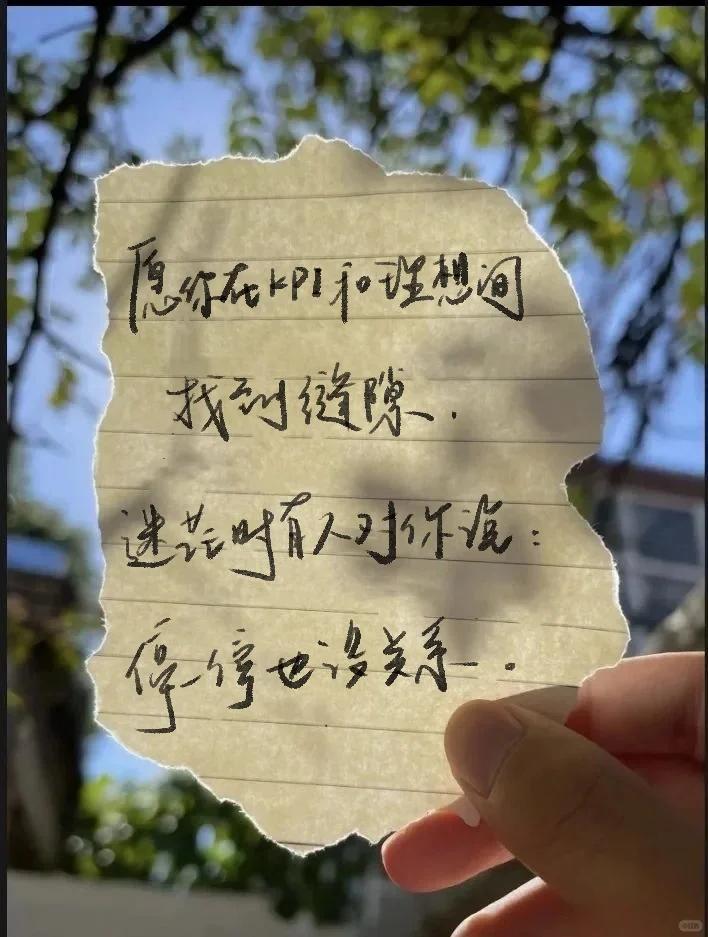 愿你在KPI和理想间
找到缝隙.
迷茫时有人对你说:
停一停也没关系.